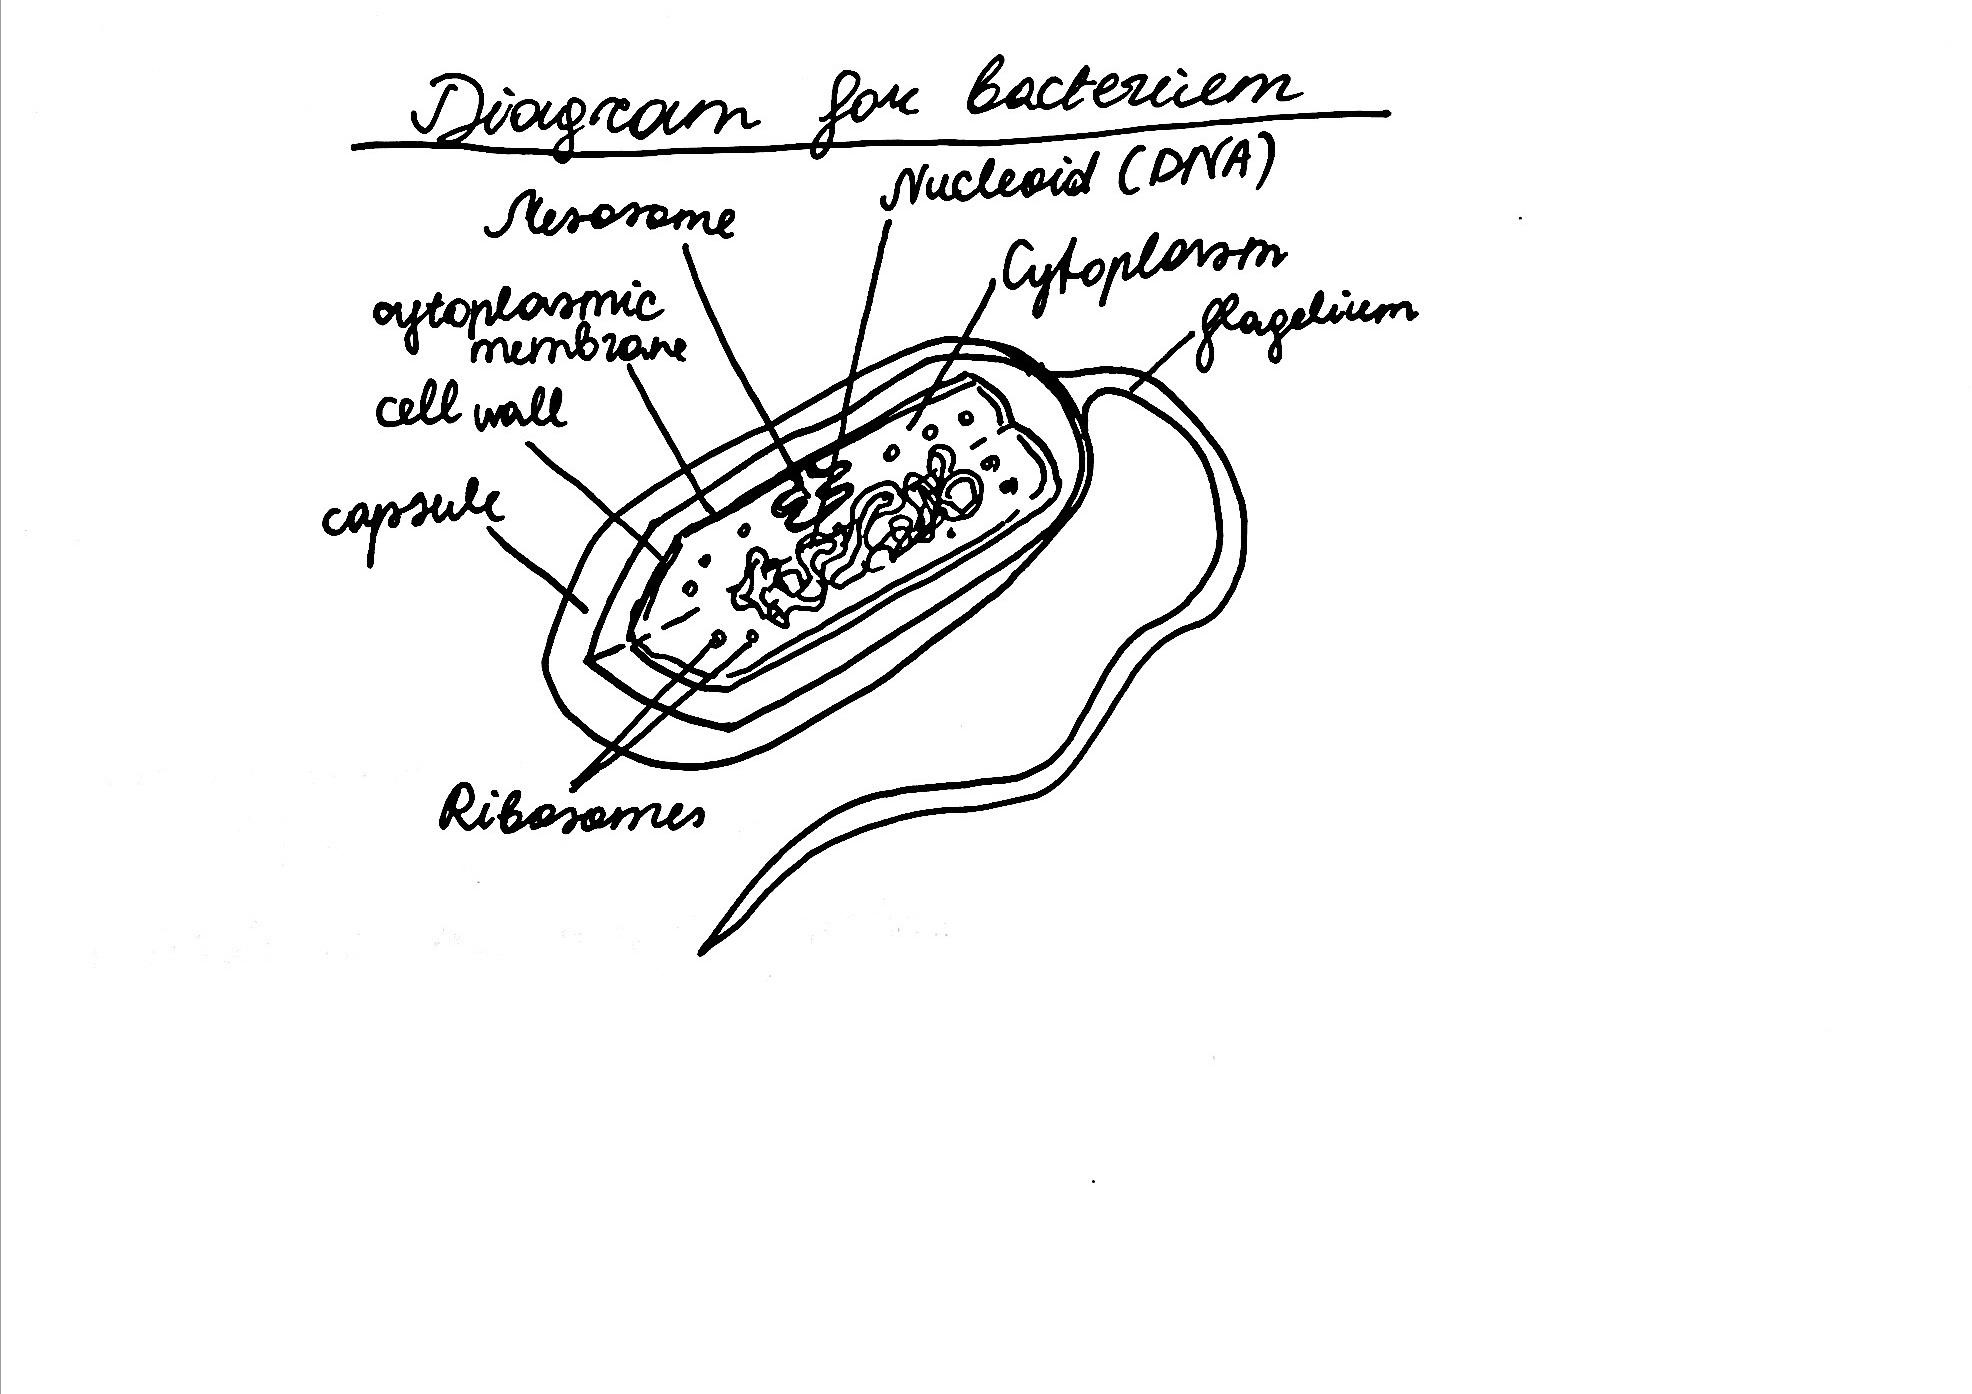 Diagram for bacterium
Nucleoid (DNA)
Mesosome
Cytoplasm
cytoplasmic
membrane
flagellum
cell wall
capsule
Ribosomes